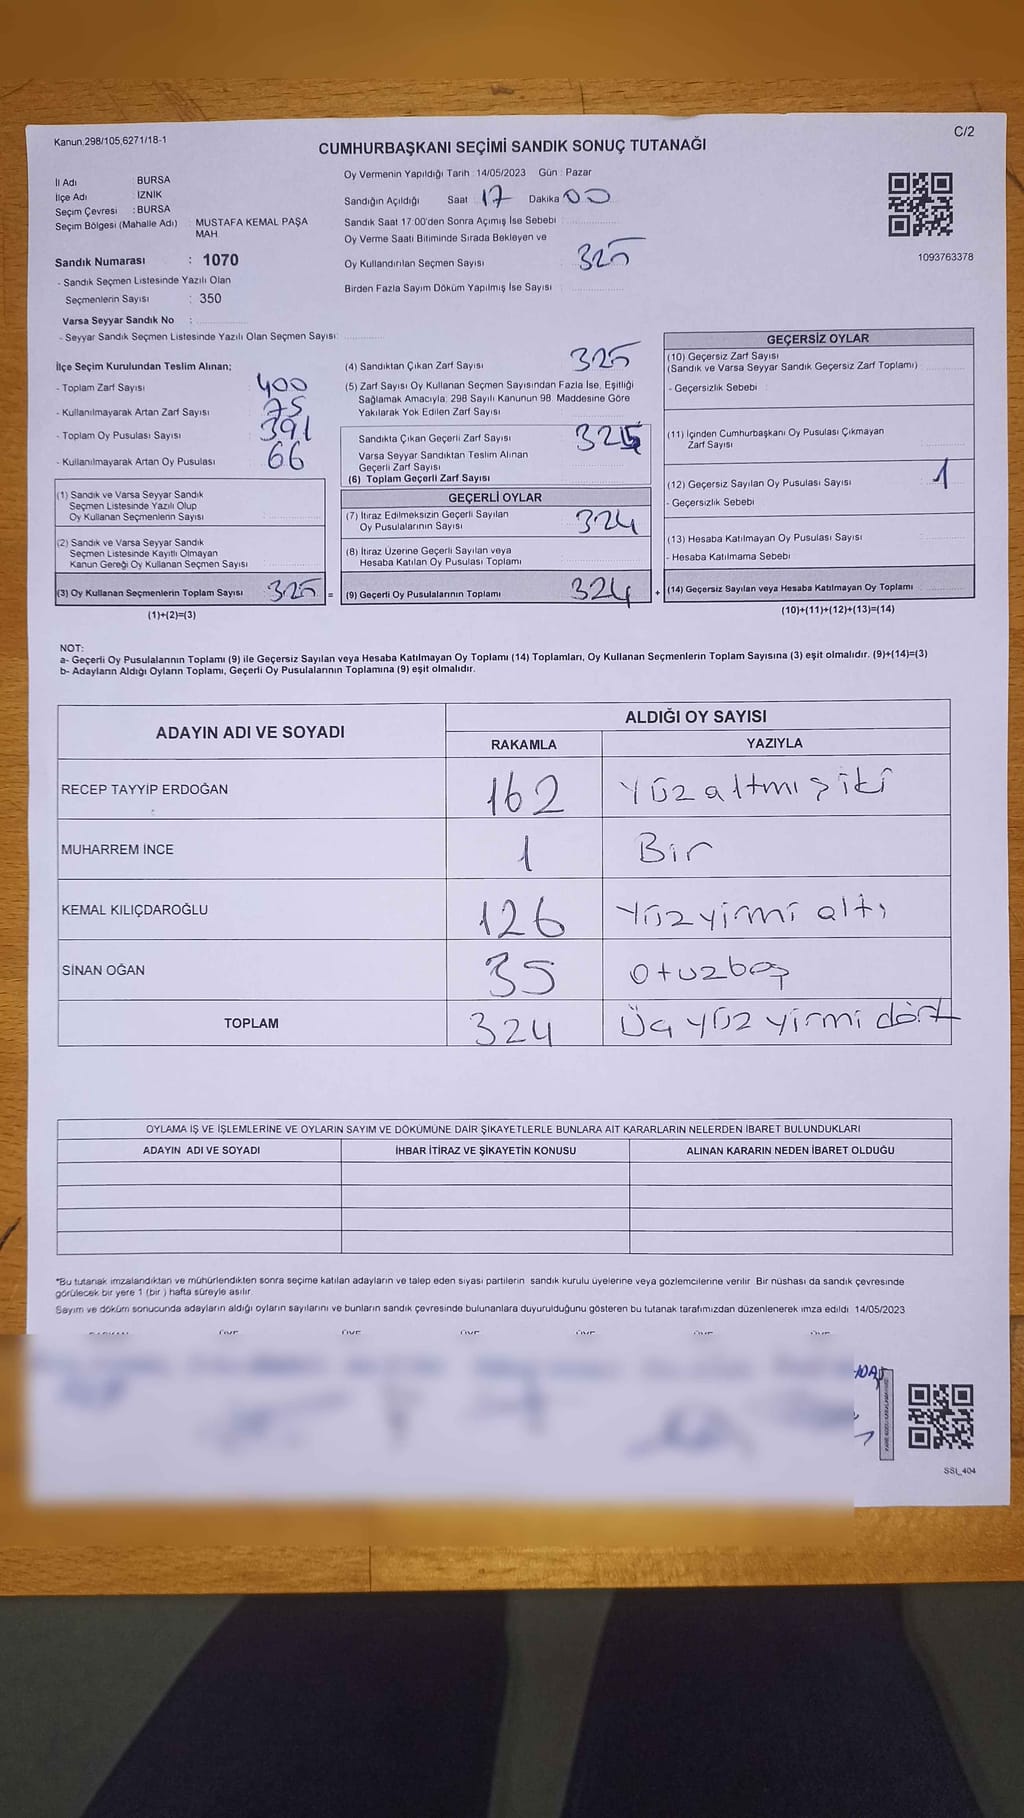 Kanun.298/105,6271/18-1
C/2
CUMHURBAŞKANI SEÇİMİ SANDIK SONUÇ TUTANAĞI
İl Adı : BURSA
İlçe Adı : İZNİK
Seçim Çevresi : BURSA
Seçim Bölgesi (Mahalle Adı) : MUSTAFA KEMAL PAŞA
MAH.
Sandık Numarası : 1070
- Sandık Seçmen Listesinde Yazılı Olan
Seçmenlerin Sayısı : 350
Varsa Seyyar Sandık No :
- Seyyar Sandık Seçmen Listesinde Yazılı Olan Seçmen Sayısı:
Oy Vermenin Yapıldığı Tarih : 14/05/2023 Gün : Pazar
Sandığın Açıldığı Saat 17 Dakika 00
Sandık Saat 17:00'den Sonra Açımış İse Sebebi :
Oy Verme Saati Bitiminde Sırada Bekleyen ve
Oy Kullandırılan Seçmen Sayısı : 325
Birden Fazla Sayım Döküm Yapılmış İse Sayısı :
1093763378
İlçe Seçim Kurulundan Teslim Alınan;
- Toplam Zarf Sayısı : 400
- Kullanılmayarak Artan Zarf Sayısı : 75
- Toplam Oy Pusulası Sayısı : 391
- Kullanılmayarak Artan Oy Pusulası : 66
(1) Sandık ve Varsa Seyyar Sandık
Seçmen Listesinde Yazılı Olup
Oy Kullanan Seçmenlerin Sayısı
(2) Sandık ve Varsa Seyyar Sandık
Seçmen Listesinde Kayıtlı Olmayan
Kanun Gereği Oy Kullanan Seçmen Sayısı
(3) Oy Kullanan Seçmenlerin Toplam Sayısı 325 =
(1)+(2)=(3)
(4) Sandıktan Çıkan Zarf Sayısı : 325
(5) Zarf Sayısı Oy Kullanan Seçmen Sayısından Fazla İse, Eşitliği
Sağlamak Amacıyla; 298 Sayılı Kanunun 98. Maddesine Göre
Yakılarak Yok Edilen Zarf Sayısı :
Sandıkta Çıkan Geçerli Zarf Sayısı : 325
Varsa Seyyar Sandıktan Teslim Alınan
Geçerli Zarf Sayısı
(6) Toplam Geçerli Zarf Sayısı
GEÇERLİ OYLAR
(7) İtiraz Edilmeksizin Geçerli Sayılan
Oy Pusulalarının Sayısı 324
(8) İtiraz Üzerine Geçerli Sayılan veya
Hesaba Katılan Oy Pusulası Toplamı
(9) Geçerli Oy Pusulalarının Toplamı 324 +
GEÇERSİZ OYLAR
(10) Geçersiz Zarf Sayısı
(Sandık ve Varsa Seyyar Sandık Geçersiz Zarf Toplamı)
- Geçersizlik Sebebi :
(11) İçinden Cumhurbaşkanı Oy Pusulası Çıkmayan
Zarf Sayısı
(12) Geçersiz Sayılan Oy Pusulası Sayısı 1
- Geçersizlik Sebebi
(13) Hesaba Katılmayan Oy Pusulası Sayısı
- Hesaba Katılmama Sebebi
(14) Geçersiz Sayılan veya Hesaba Katılmayan Oy Toplamı
(10)+(11)+(12)+(13)=(14)
NOT:
a- Geçerli Oy Pusulalarının Toplamı (9) ile Geçersiz Sayılan veya Hesaba Katılmayan Oy Toplamı (14) Toplamları, Oy Kullanan Seçmenlerin Toplam Sayısına (3) eşit olmalıdır. (9)+(14)=(3)
b- Adayların Aldığı Oyların Toplamı, Geçerli Oy Pusulalarının Toplamına (9) eşit olmalıdır.
ADAYIN ADI VE SOYADI
ALDIĞI OY SAYISI
RAKAMLA YAZIYLA
RECEP TAYYİP ERDOĞAN 162 Yüzaltmışiki
MUHARREM İNCE 1 Bir
KEMAL KILIÇDAROĞLU 126 Yüzyirmi altı
SİNAN OĞAN 35 otuzbeş
TOPLAM 324 Üçyüz yirmi dört
OYLAMA İŞ VE İŞLEMLERİNE VE OYLARIN SAYIM VE DÖKÜMÜNE DAİR ŞİKAYETLERLE BUNLARA AİT KARARLARIN NELERDEN İBARET BULUNDUKLARI
ADAYIN ADI VE SOYADI İHBAR İTİRAZ VE ŞİKAYETİN KONUSU ALINAN KARARIN NEDEN İBARET OLDUĞU
*Bu tutanak imzalandıktan ve mühürlendikten sonra seçime katılan adayların ve talep eden siyasi partilerin sandık kurulu üyelerine veya gözlemcilerine verilir. Bir nüshası da sandık çevresinde
görülecek bir yere 1 (bir ) hafta süreyle asılır.
Sayım ve döküm sonucunda adayların aldığı oyların sayılarını ve bunların sandık çevresinde bulunanlara duyurulduğunu gösteren bu tutanak tarafımızdan düzenlenerek imza edildi. 14/05/2023
SSI_404